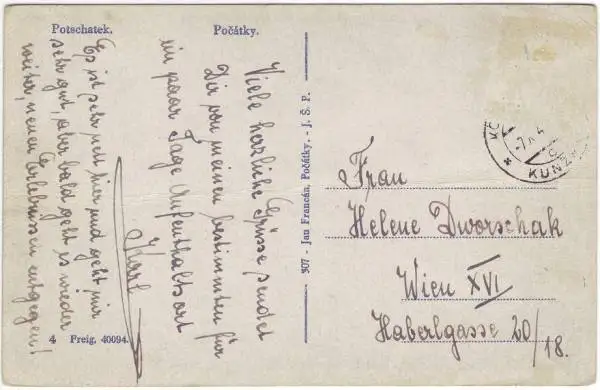 Potschatek. Počátky.
Viele herzliche Grüsse sendet
Dir von meinen bestimmten für
ein paar Tage Aufenthaltsort
Karl
Es ist sehr nett hier und geht mir
sehr gut, aber bald geht es wieder
weiter, neuen Erlebnissen entgegen!
4 Freig. 40094.
307 - Jan Francán, Počátky. - J. Š. P.
KUNŽ
Frau
Helene Dworschak
Wien XVI
Haberlgasse 20/18.